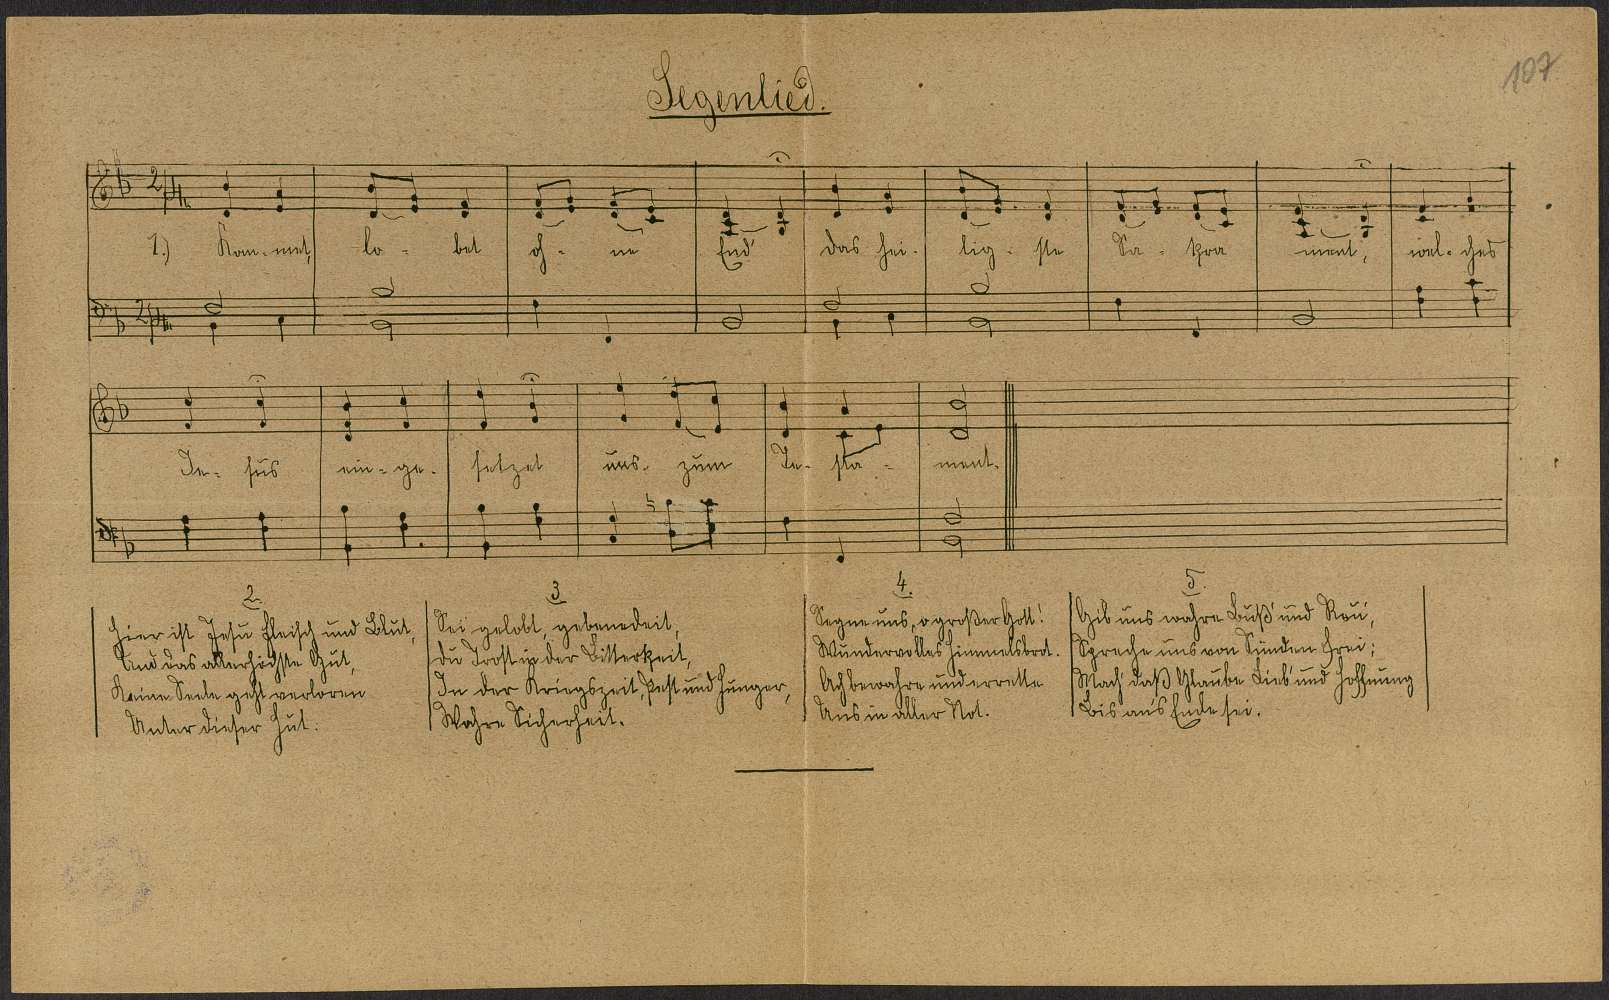 Segenlied.
107
1.) Kom-met, lo-bet oh-ne End' das hei-lig-ste Sa-kra ment, wel-ches
Je-sus ein-ge-setzet uns-zum Te-sta-ment.
2.
Hier ist Jesu Fleisch und Blut,
Und das allerhöchste Gut,
Keine Seele geht verloren
Unter dieser Hut.
3
Sei gelobt, gebenedeit,
Du Trost in der Bitterkeit,
In der Kriegszeit, Pest und Hunger,
Wahre Sicherheit.
4.
Segne uns, o großer Gott!
Wundervolles Himmelsbrot.
Ach bewahre und errette
Uns in aller Not.
5.
Gib uns wahre Buß' und Reu',
Spreche uns von Sünden frei;
Mach' daß Glaube Lieb' und Hoffnung
Bis an's Ende sei.